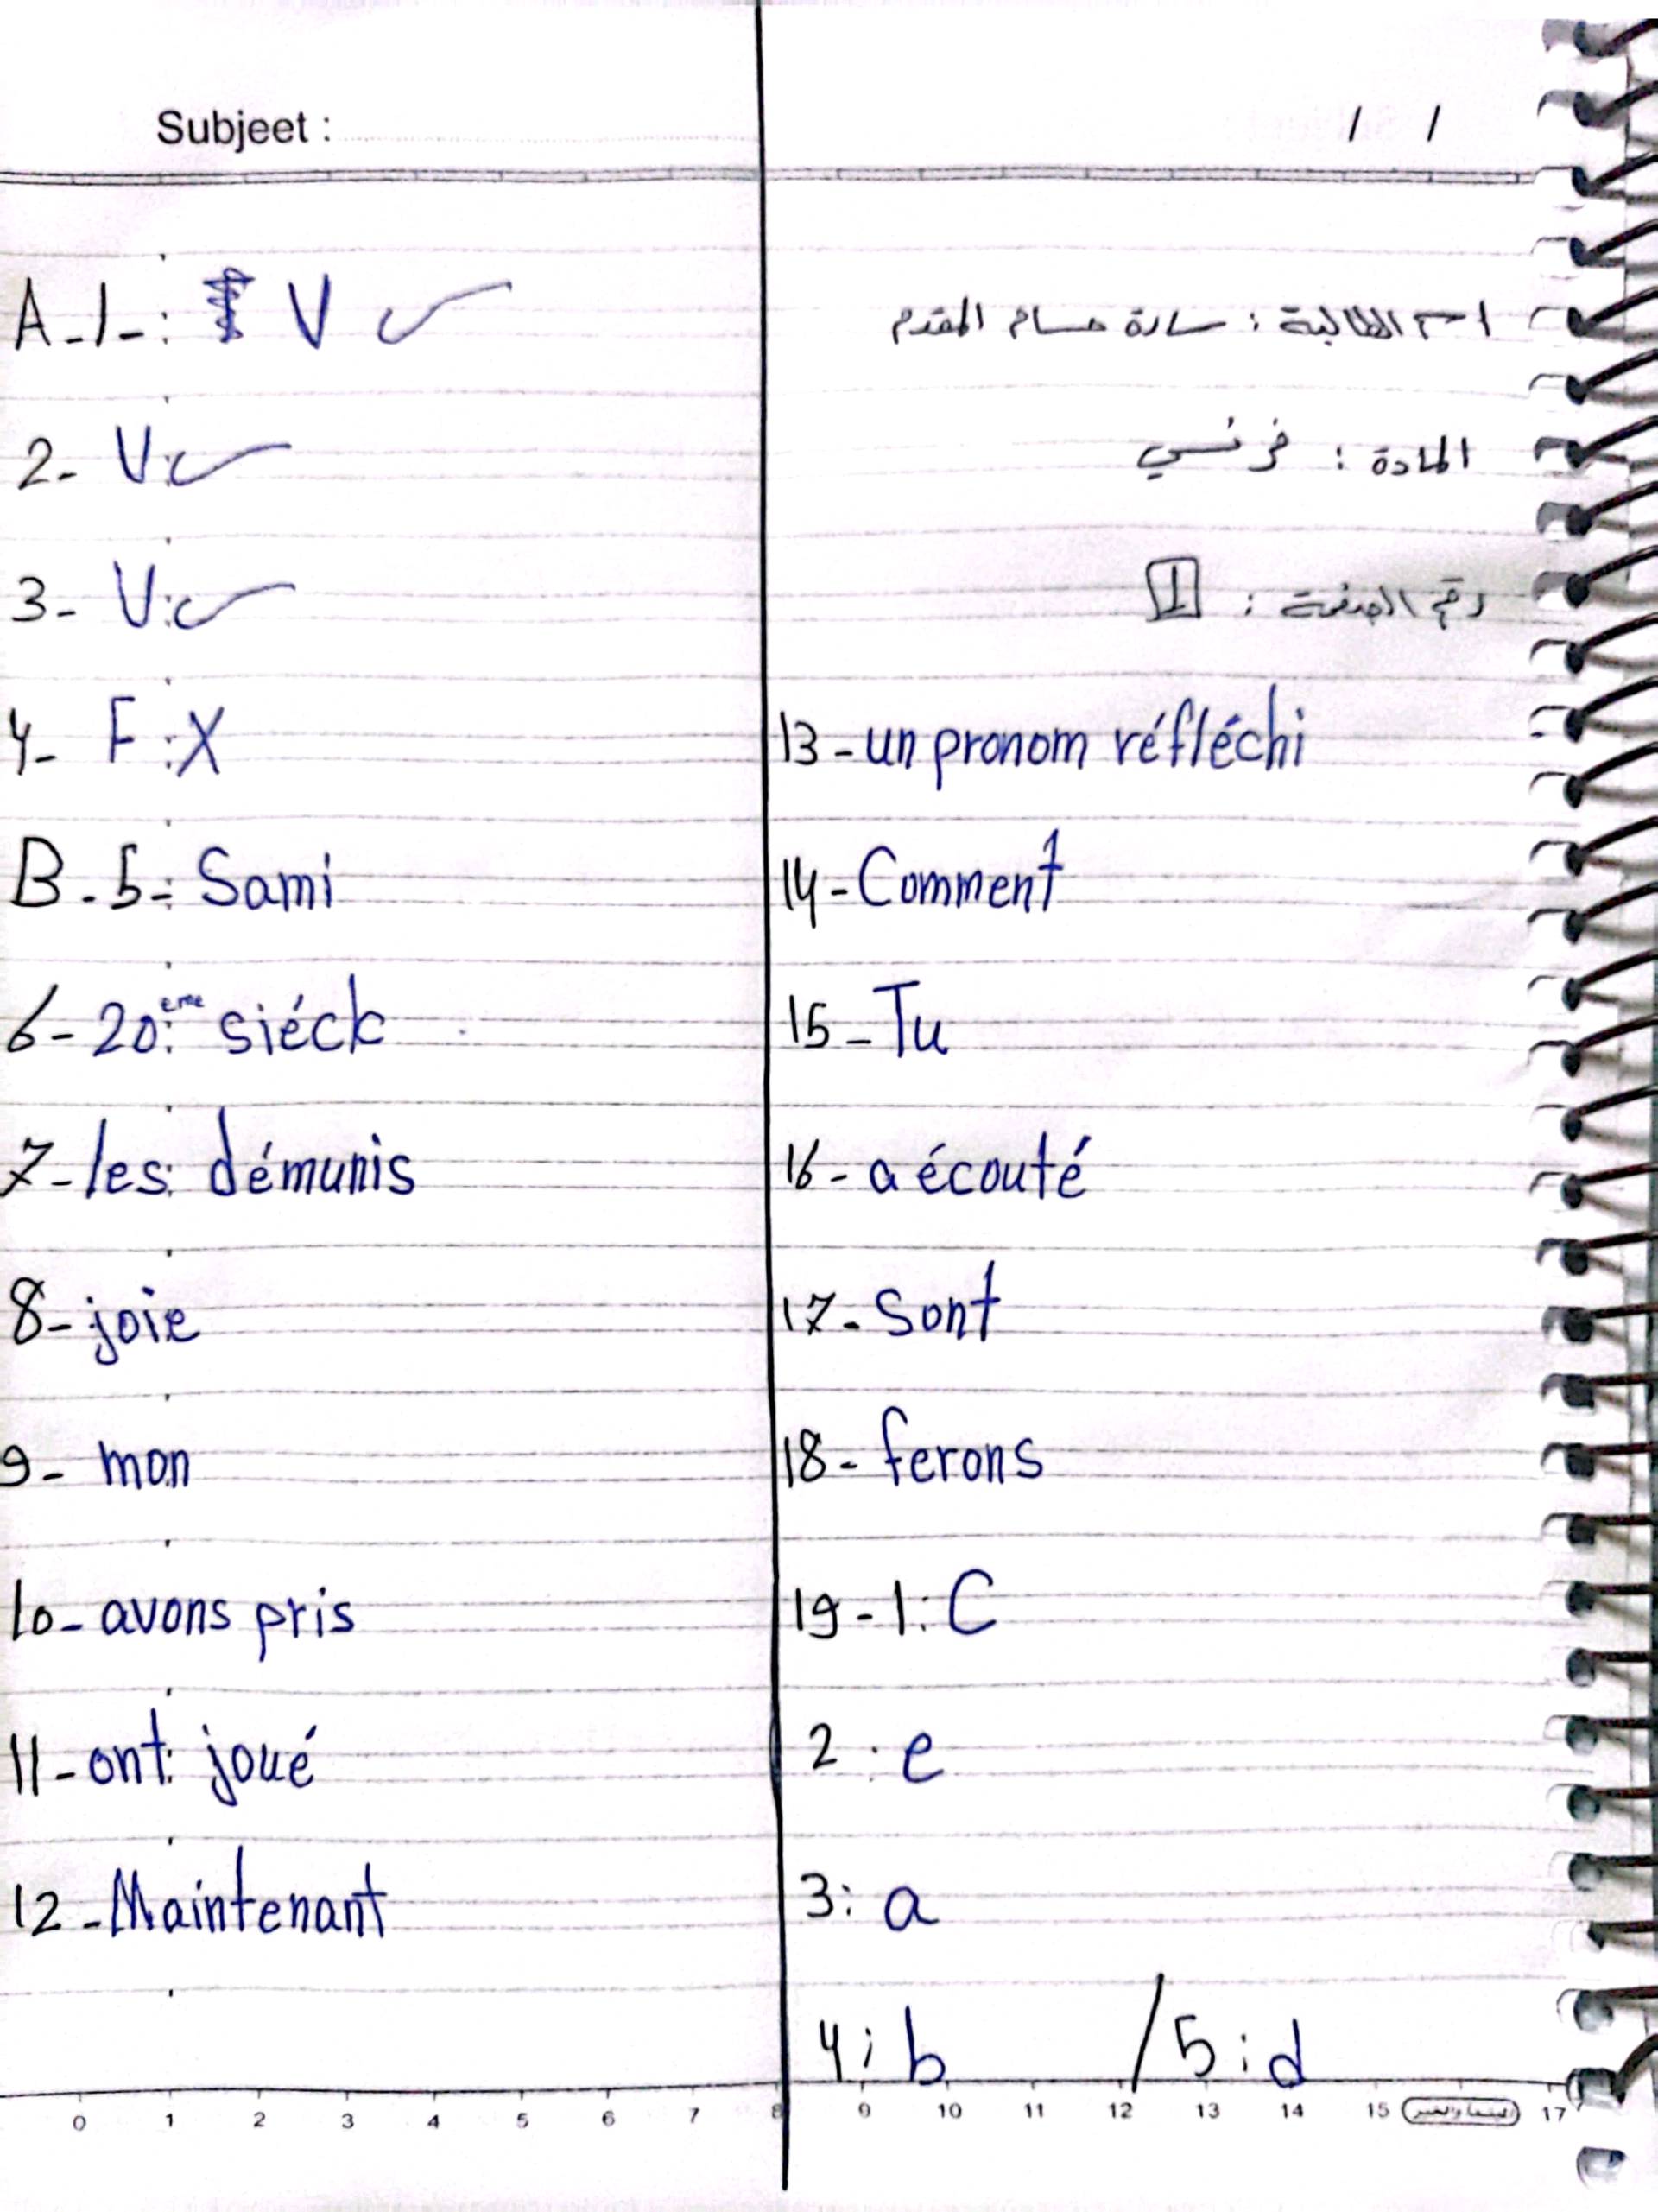 Subjeet :
/ /
A-1-: V ✓
2- V: ✓
3- V: ✓
4- F: X
B-5-: Sami
6- 20ème siéck
7- les démunis
8- joie
9- mon
10- avons pris
11- ont joué
12- Maintenant
اسم الطالبة : سارة حسام المقدم
المادة : فرنسي
رقم الصفحة : 1
13- un pronom réfléchi
14- Comment
15- Tu
16- a écouté
17- Sont
18- ferons
19- 1: C
2: e
3: a
4: b / 5: d
0 1 2 3 4 5 6 7 8 9 10 11 12 13 14 15 17